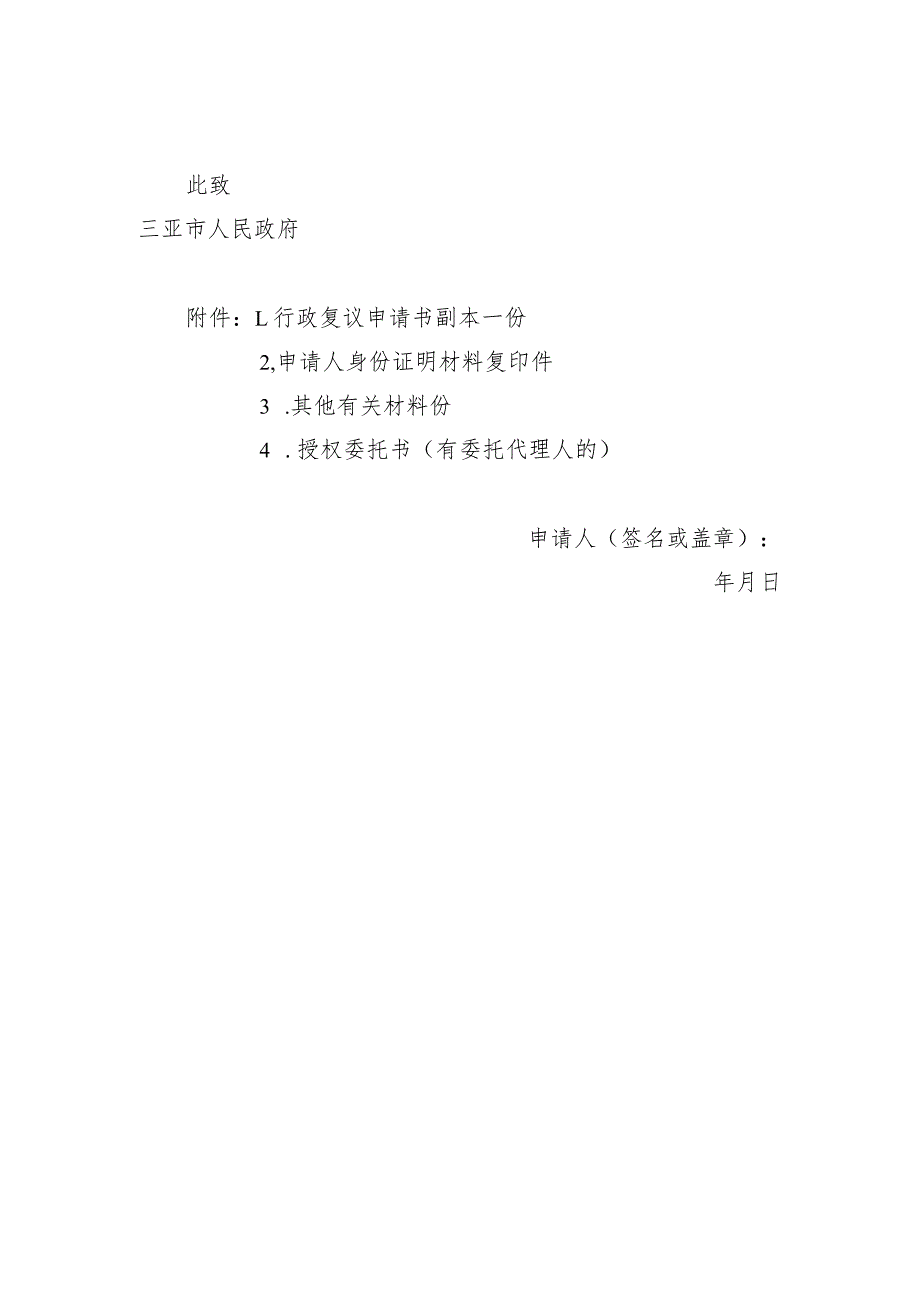 此致
三亚市人民政府
附件：L行政复议申请书副本一份
2,申请人身份证明材料复印件
3 .其他有关材料份
4 .授权委托书（有委托代理人的）
申请人（签名或盖章）：
年月日